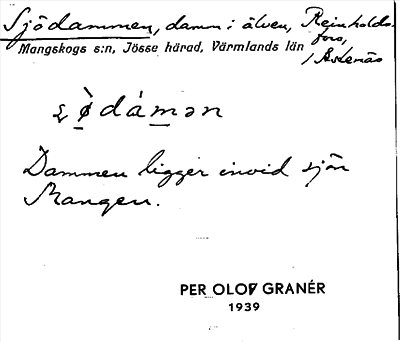 Sjödammen, damm i älven, Reinholds-
fors,
Mangskogs s:n, Jösse härad, Värmlands län
ʂö̀dámən
Dammen ligger invid sjön
Mangen.
PER OLOF GRANÉR
1939